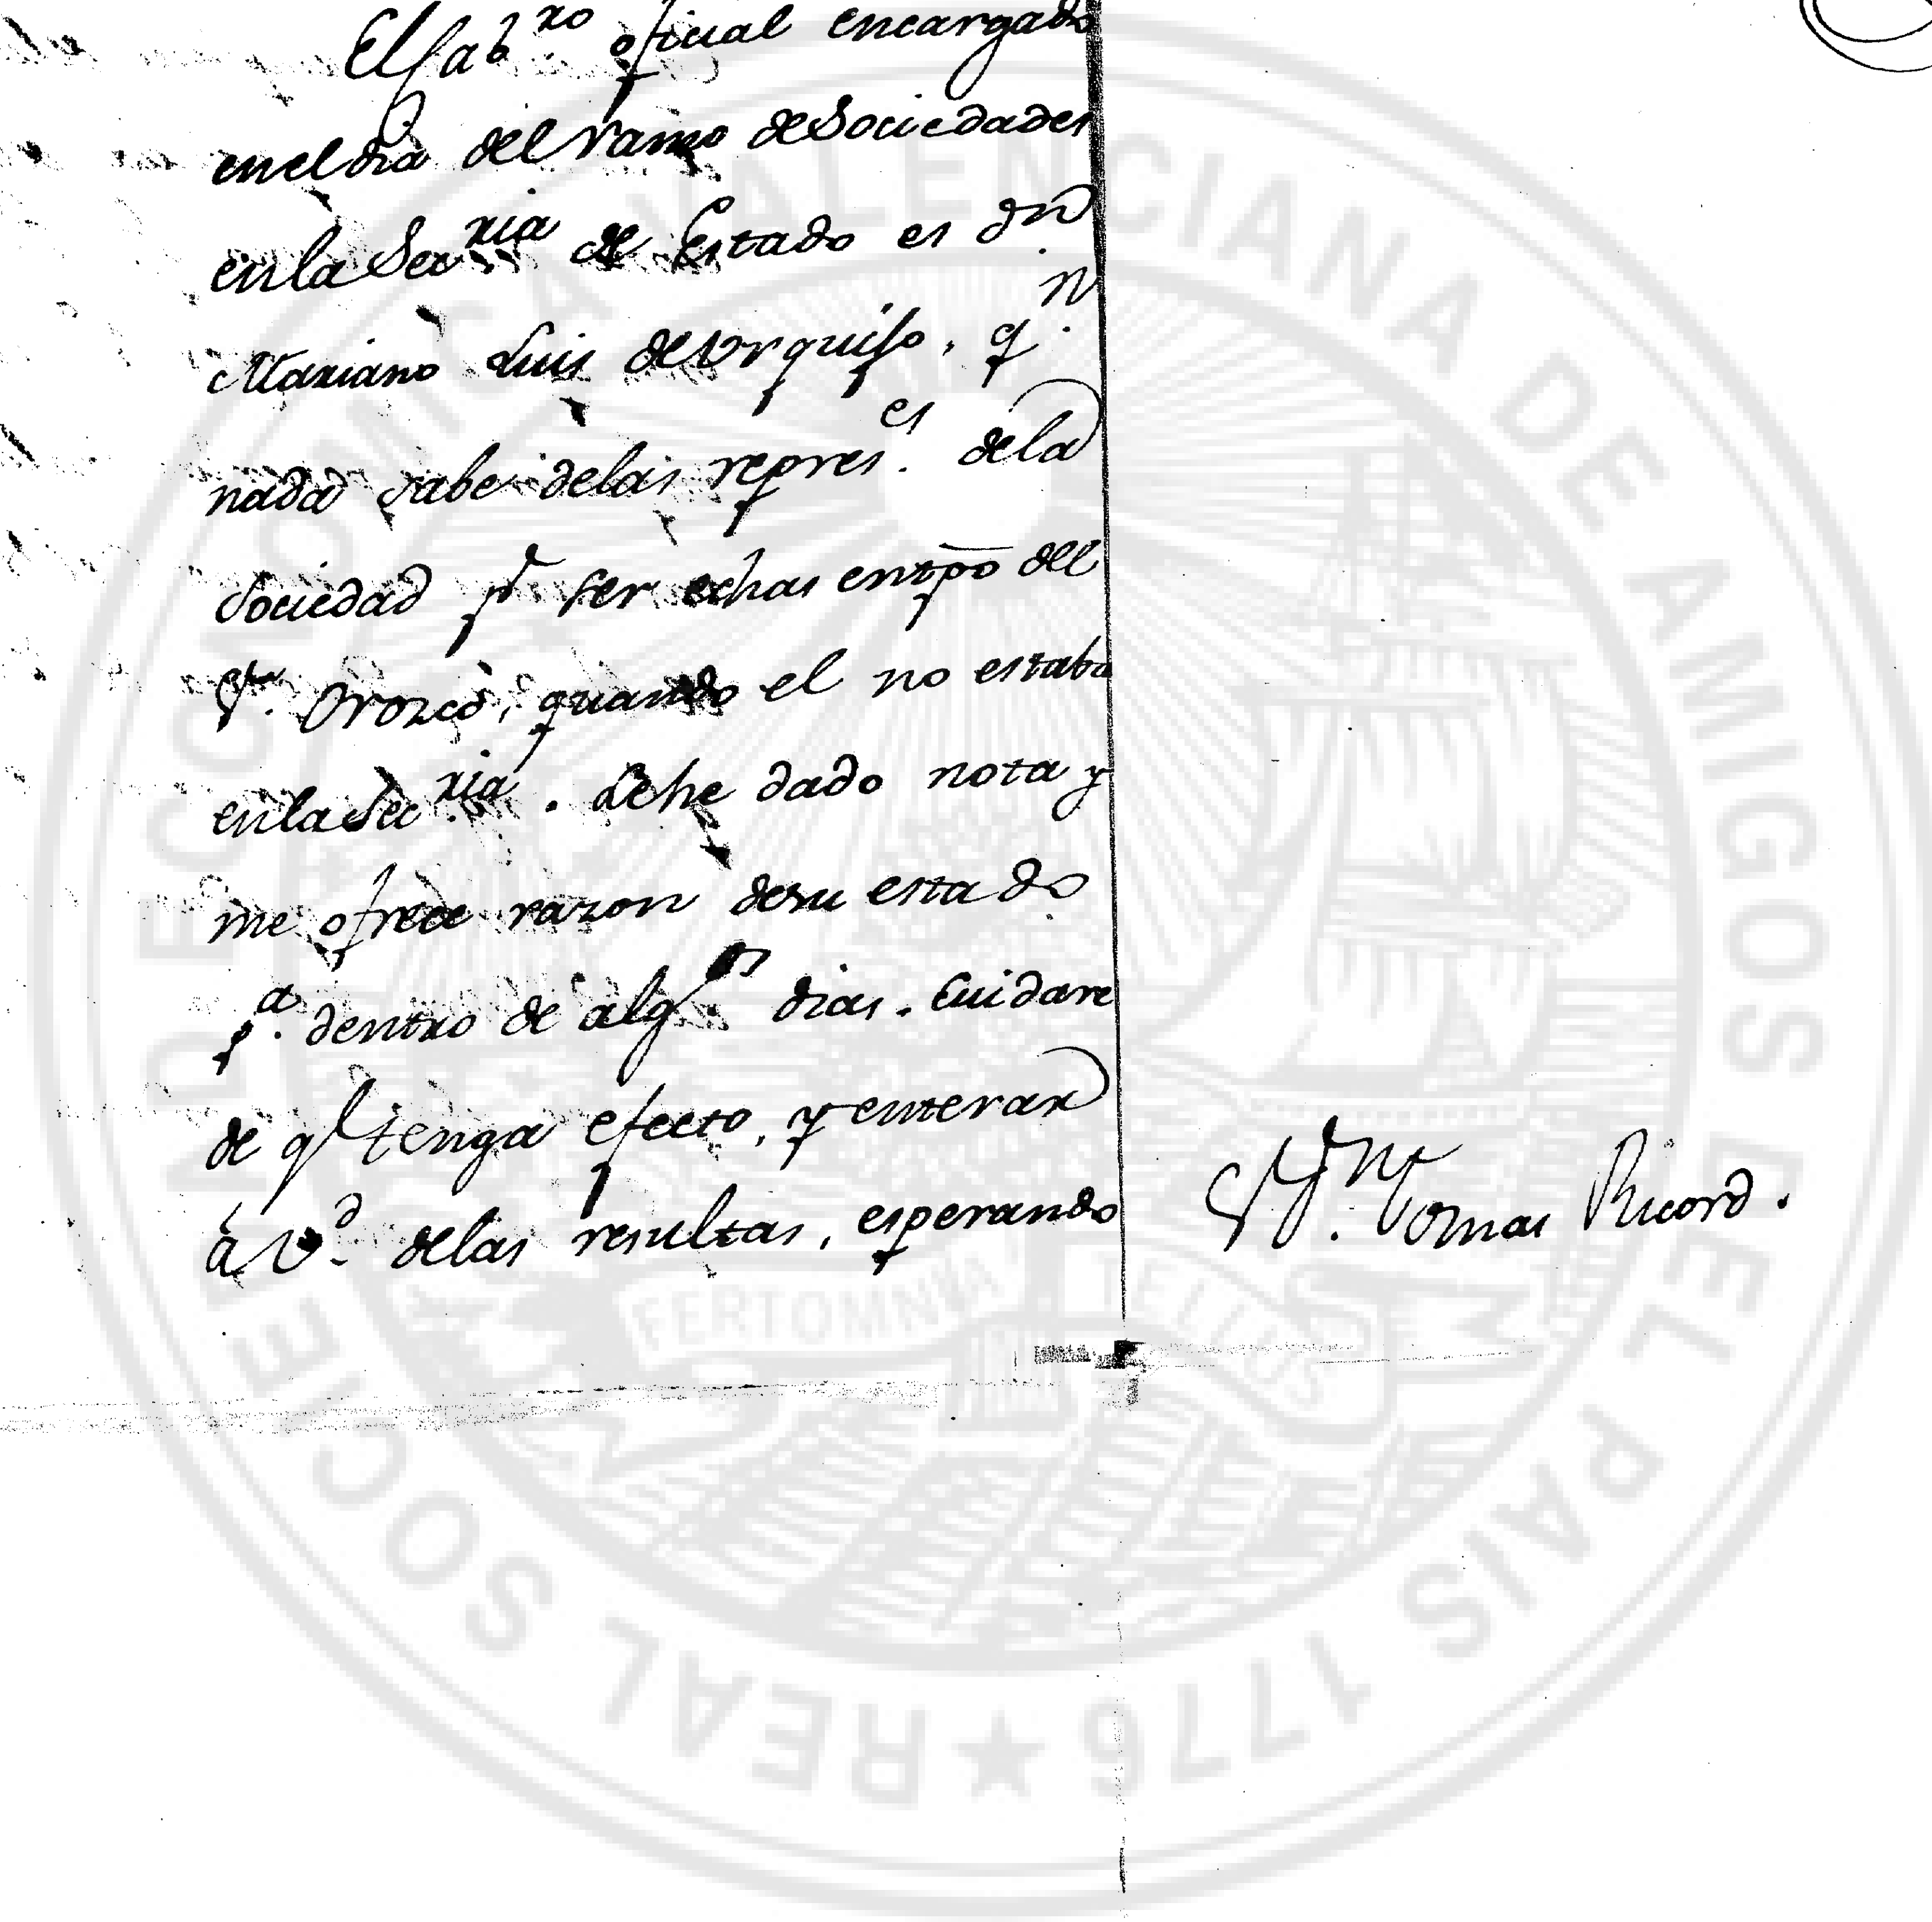 El Cab.ro oficial encargado
en el dia del ramo de Sociedades
en la Sec.ria de Estado es Dn.
Mariano Luis de Urquiso, q.n
nada sabe delas repres.es dela
Sociedad pr. ser echas en tpo del
Sr. Orozco, quando el no estaba
en la Sec.ria. Le he dado nota y
me ofrece razon de su estado
p.a dentro de alg.os dias. Cuidare
de q tenga efecto, y enterar
à V.d delas resultas, esperando
Sr. Dn. Tomas Ricord.
REAL SOCIEDAD ECONOMICA VALENCIANA DE AMIGOS DEL PAIS 1776 ★
FERTOMNIA TELLUS